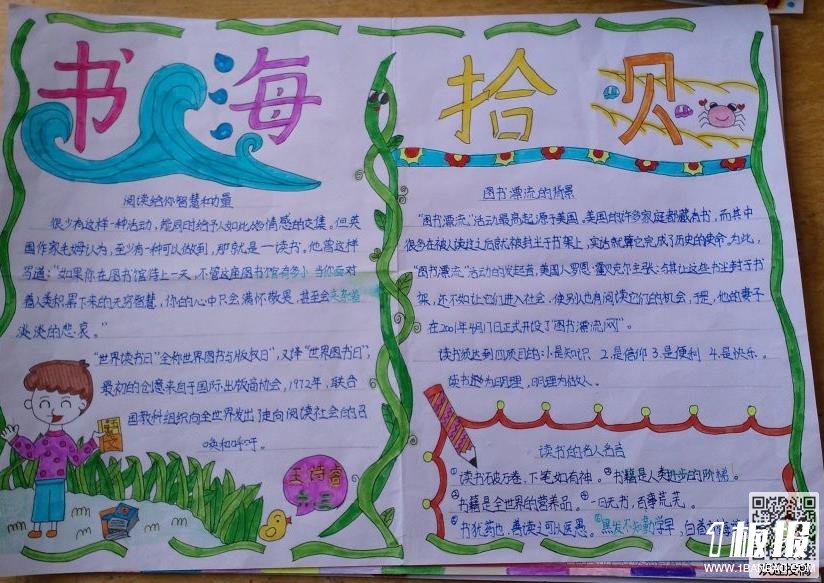 书海拾贝
阅读给你智慧和力量
很少有这样一种活动,能同时给予人如此多情感的交集。但英
国作家毛姆认为,至少有一种可以做到,那就是一读书。他曾这样
写道:"如果你在图书馆待上一天,不管这座图书馆有多小当你面对
着人类积累下来的无穷智慧,你的心中只会满怀敬畏,甚至会夹杂着
淡淡的悲哀。"
"世界读书日"全称世界图书与版权日",又译"世界图书日",
最初的创意来自于国际出版商协会,1972年,联合
国教科组织向全世界发出了走向阅读社会的召
唤和呼吁。
六三
图书漂流的背景
"图书漂流"活动最高起源于美国。美国的许多家庭都藏有书,而其中
很多在被人读过之后就被封尘于书架上,实话就算它完成了历史的使命。为此,
"图书漂流"活动的发起者,美国人罗恩·霍贝克尔主张:与其让这些书尘封于书
架,还不如让它们进入社会,使别人也有阅读它们的机会,于是,他的妻子
在2001年4月17日正式开设了"图书漂流网"。
读书须达到四项目的:1.是知识 2.是信仰 3.是便利 4.是快乐。
读书为明理,明理为做人。
读书的名人名言
①读书不破万卷,下笔如有神。②书籍是人类进步的阶梯。
③书籍是全世界的营养品。④一日无书,百事荒芜。
⑤书犹药也,善读之可以医愚。⑥黑发不知勤学早,白首
1板报
WWW.1BANBAO.COM